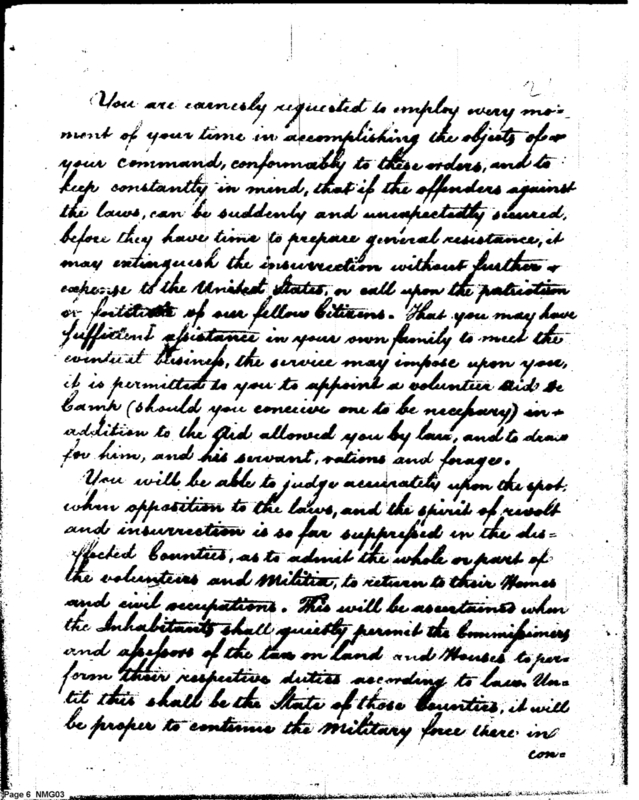 2
You are earnesly requested to employ every mo=
ment of your time in accomplishing the objects of
your command, conformably to these orders, and to
keep constantly in mind, that if the offenders against
the laws, can be suddenly and unexpectedly secured,
before they have time to prepare general resistance, it
may extinguish the insurrection without further
expense to the United States, or call upon the patriotism
or fortitude of our fellow Citizens. That you may have
sufficient assistance in your own family to meet the
eventual business, the service may impose upon you,
it is permitted to you to appoint a volunteer Aid De
Camp (should you conceive one to be necessary) in
addition to the Aid allowed you by law, and to draw
for him, and his servant, rations and forage.
You will be able to judge accurately upon the spot,
when opposition to the laws, and the spirit of revolt
and insurrection is so far suppressed in the dis=
affected Counties, as to admit the whole or part of
the volunteers and Militia, to return to their Homes
and civil occupations. This will be ascertained when
the Inhabitants shall quietly permit the Commissioners
and assessors of the tax on land and Houses to per=
form their respective duties according to law. Un=
til this shall be the State of those Counties, it will
be proper to continue the Military force there in
con=
Page 6 NMG03